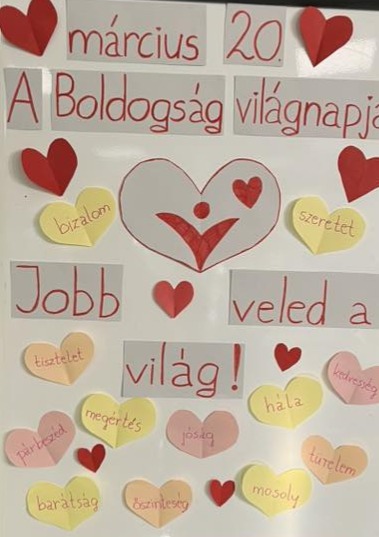 március 20.
A Boldogság világnapja
bizalom
szeretet
Jobb veled a
világ!
tisztelet
kedvesség
megértés
hála
párbeszéd
jóság
türelem
barátság
őszinteség
mosoly